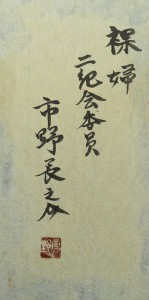 裸婦
二紀会委員
市野長之介